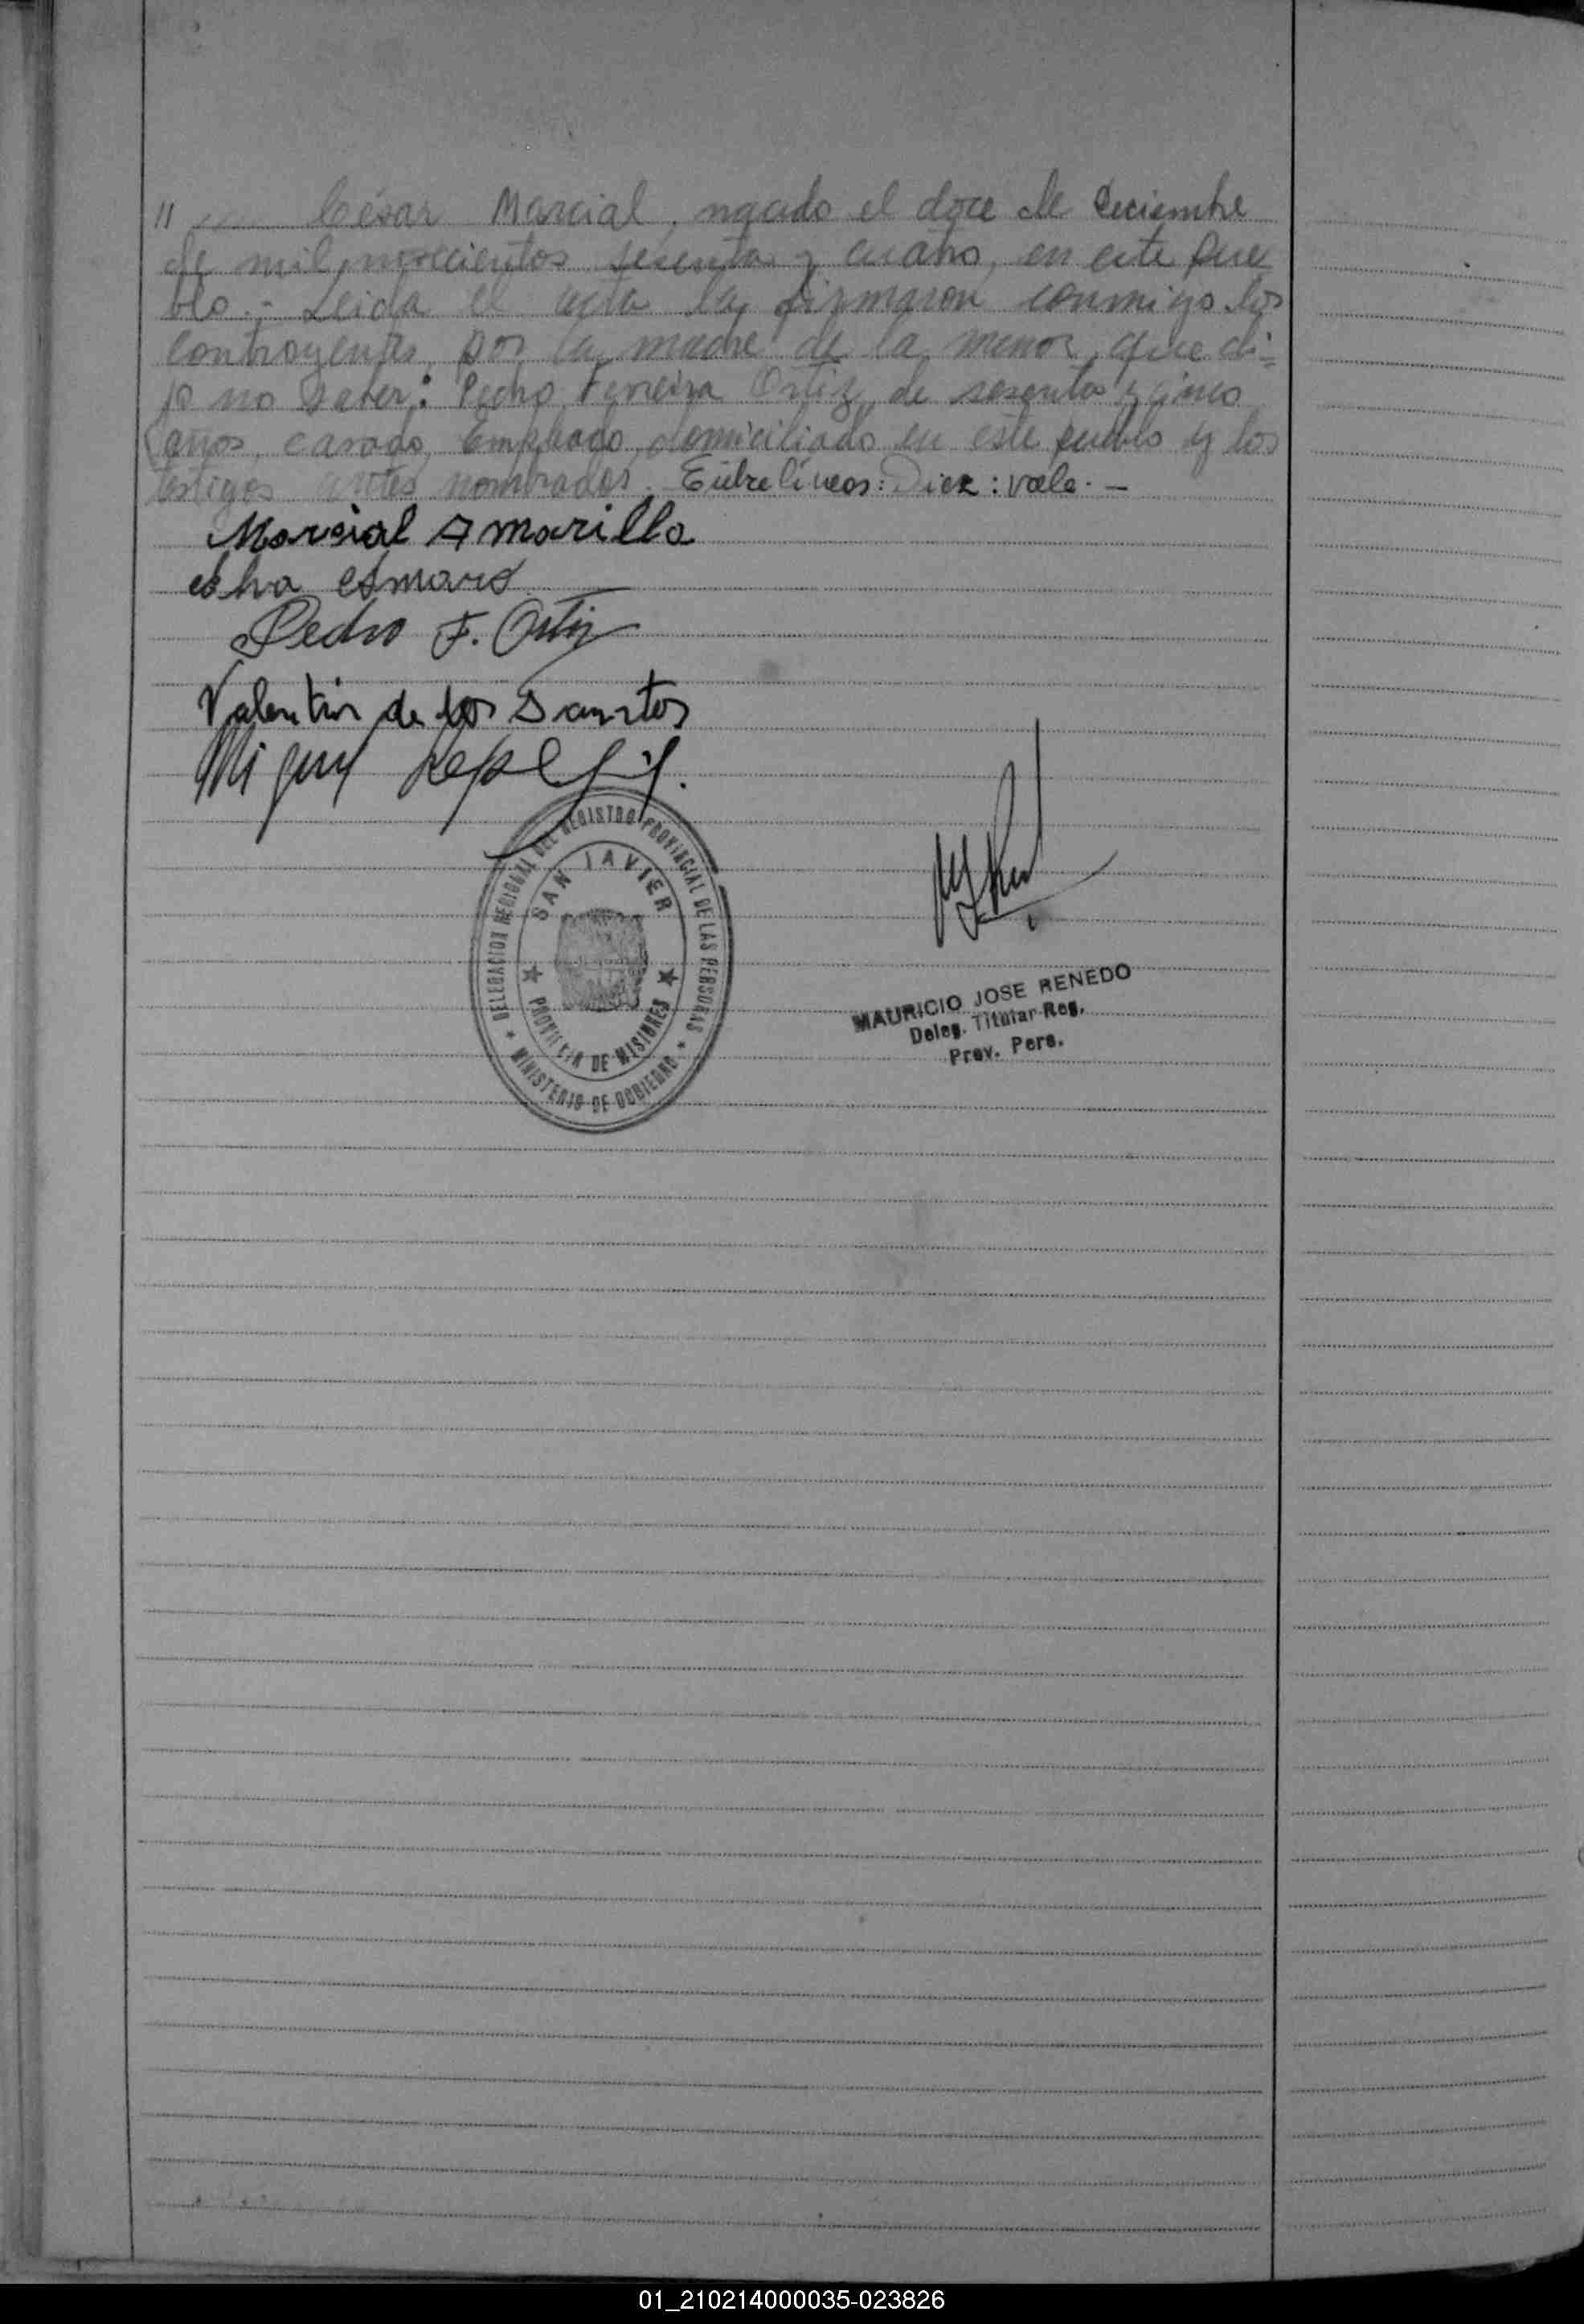 " César Marcial, nacido el doce de Diciembre
de mil novecientos sesenta y cuatro, en este pue
blo.- Leida el acta la firmaron conmigo los
contrayentes, por la madre de la menor, que di=
jo no saber: Pedro Ferreira Ortiz, de sesenta y cinco
años, casado, Empleado, domiciliado en este pueblo y los
testigos antes nombrados. Entre líneas: Diez: vale.-
Marcial Amarilla
Elva Amaro
Pedro F. Ortiz
Valentin de los Santos
Miguel
DELEGACION REGIONAL DEL REGISTRO PROVINCIAL DE LAS PERSONAS
SAN JAVIER
PROVINCIA DE MISIONES
MINISTERIO DE GOBIERNO
MAURICIO JOSE RENEDO
Deleg. Titular Reg.
Prov. Pers.
01_210214000035-023826